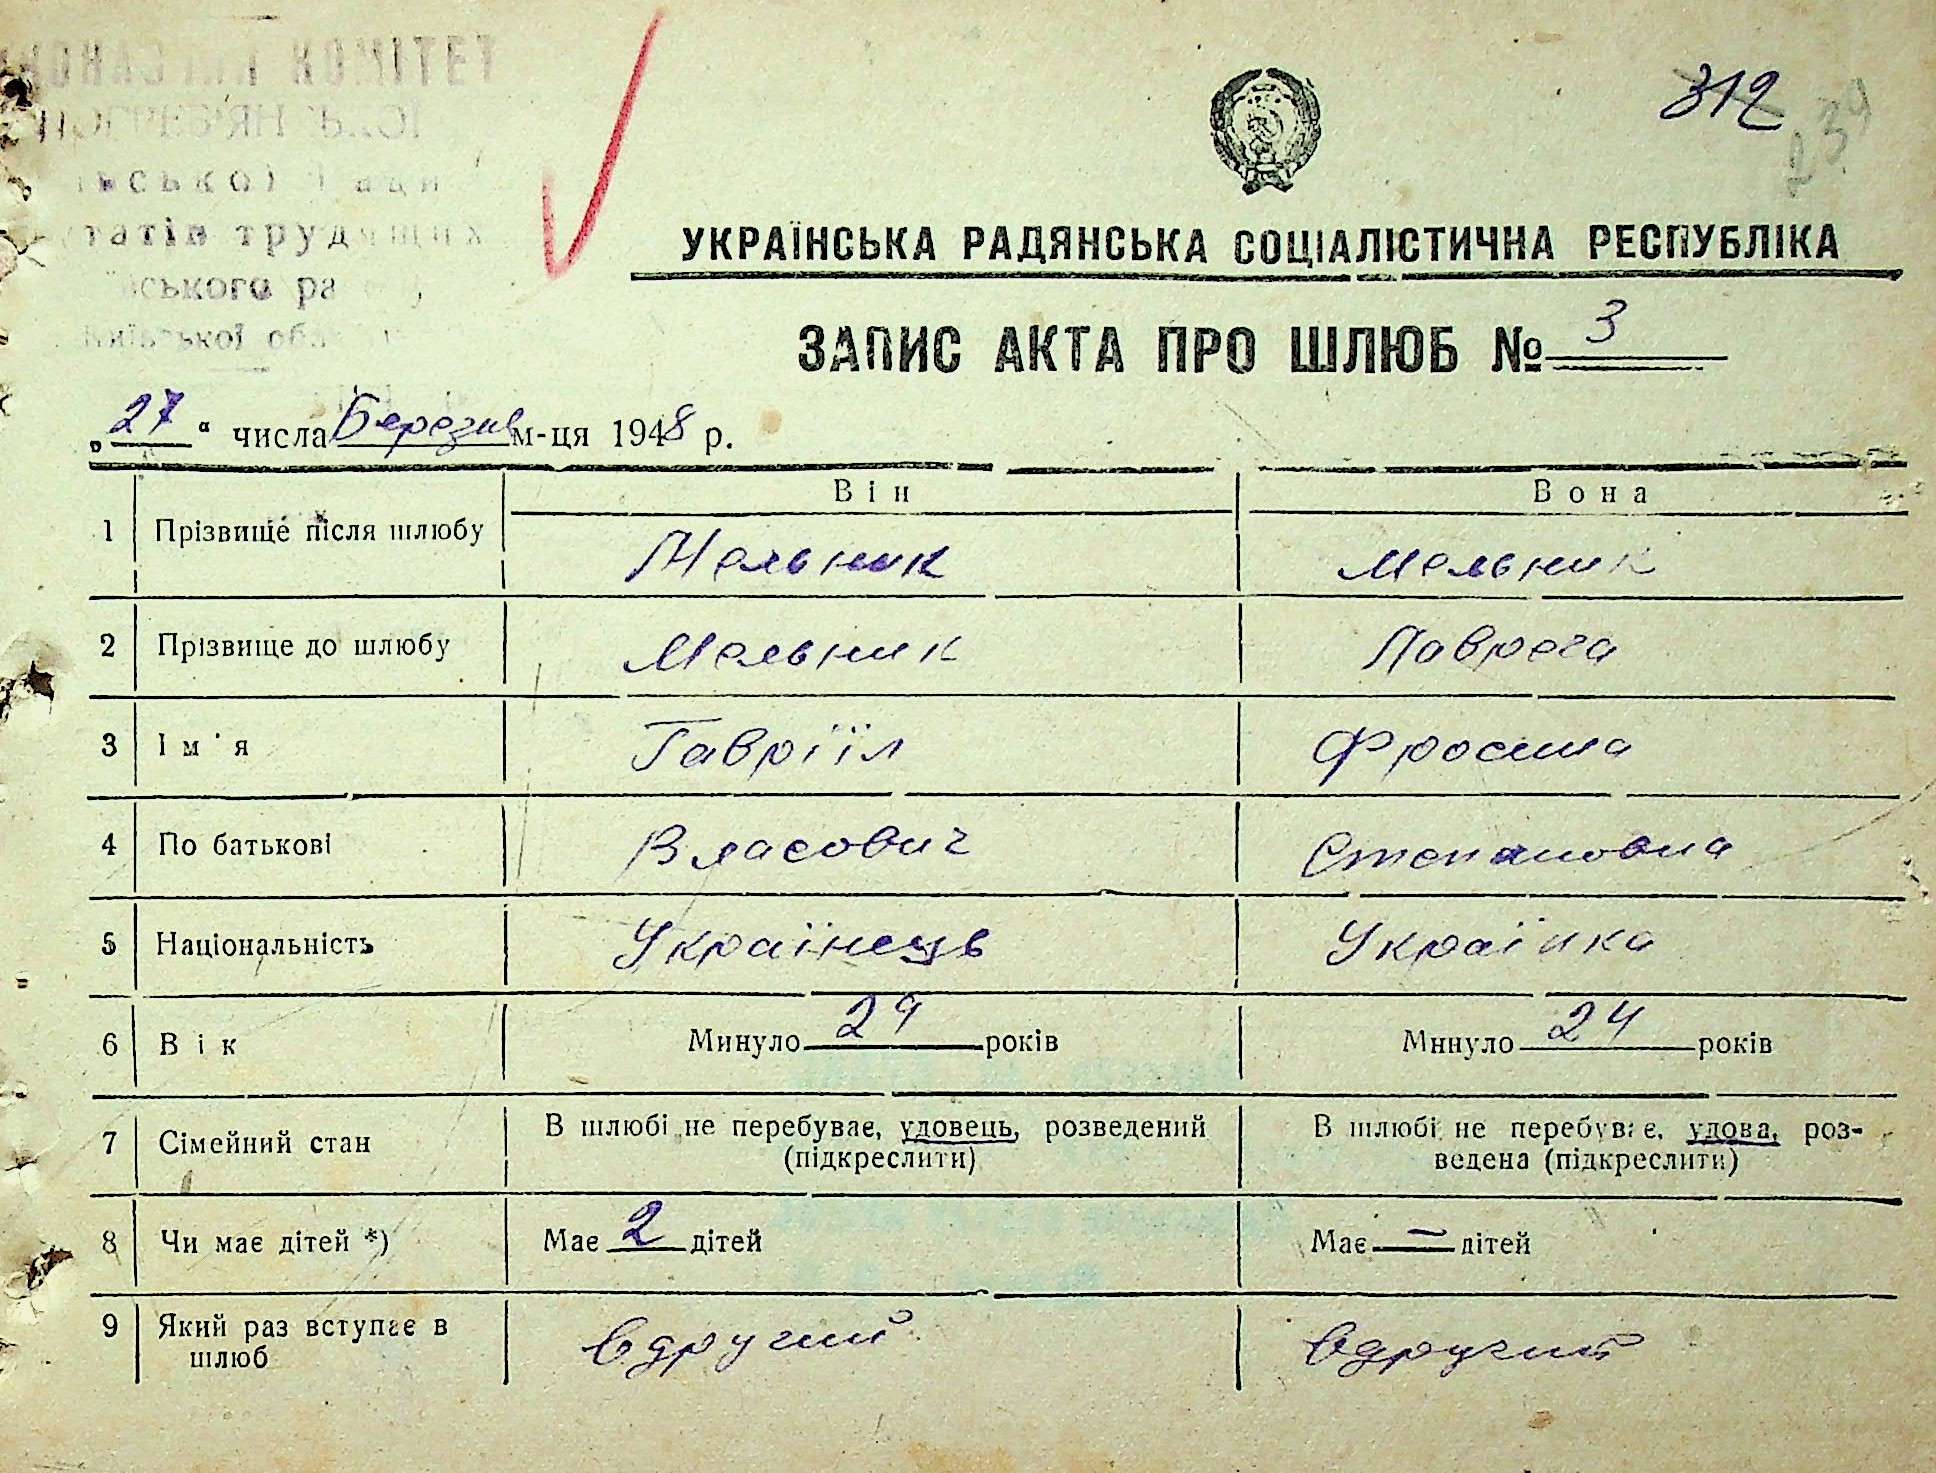 КОМІТЕТ
трудящих
ського
Київської
312
239
УКРАЇНСЬКА РАДЯНСЬКА СОЦІАЛІСТИЧНА РЕСПУБЛІКА
ЗАПИС АКТА ПРО ШЛЮБ № 3
„27“ числа Березня м-ця 1948 р.
Він Вона
1 Прізвище після шлюбу Мельник Мельник
2 Прізвище до шлюбу Мельник Лаврега
3 Ім'я Гавріїл Фросина
4 По батькові Власович Степановна
5 Національність Українець Українка
6 Вік Минуло 29 років Минуло 24 років
7 Сімейний стан В шлюбі не перебуває, удовець, розведений В шлюбі не перебуває, удова, роз-
(підкреслити) ведена (підкреслити)
8 Чи має дітей *) Має 2 дітей Має — дітей
9 Який раз вступає в вдругий вдругий
шлюб